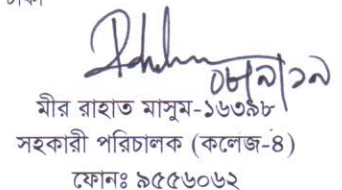 ঢাকা
০৮/৯/১৯
মীর রাহাত মাসুম-১৬৩৯৮
সহকারী পরিচালক (কলেজ-৪)
ফোনঃ ৯৫৫৬০৬২